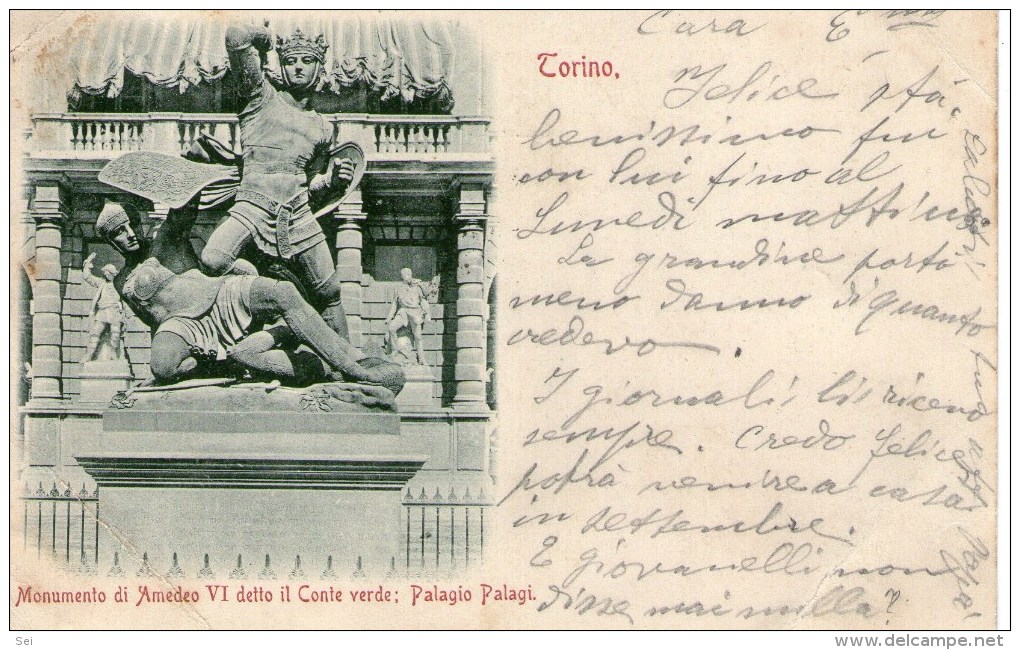 Torino,
Cara
Felice stà
benissimo fui
con lui fino al
Lunedì mattina
La grandine portò
meno danno di quanto
credevo.
I giornali li ricevo
sempre. Credo Felice
potrà venire a casa
in settembre.
E giovanelli non
disse mai nulla?
tuo
Monumento di Amedeo VI detto il Conte verde; Palagio Palagi.
Sei
www.delcampe.net